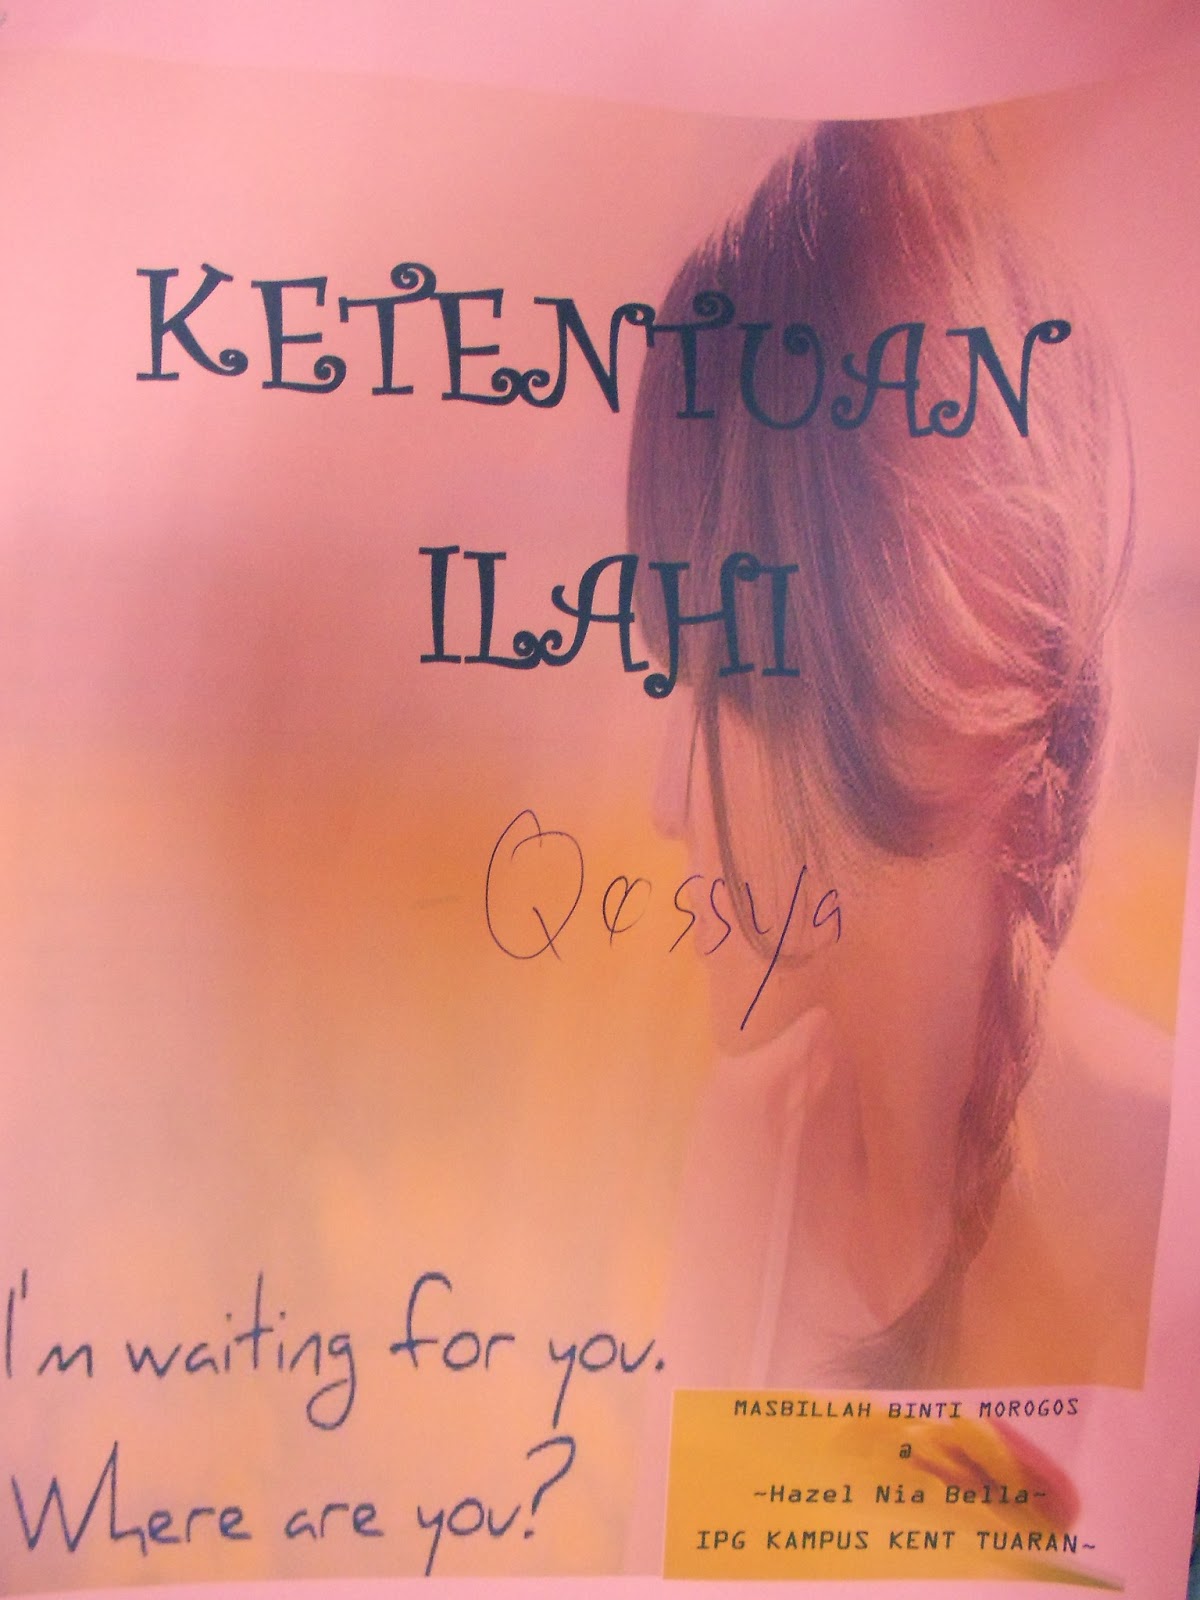 KETENTUAN
ILAHI
Qossya
I'm waiting for you.
Where are you?
MASBILLAH BINTI MOROGOS
@
~Hazel Nia Bella~
IPG KAMPUS KENT TUARAN~